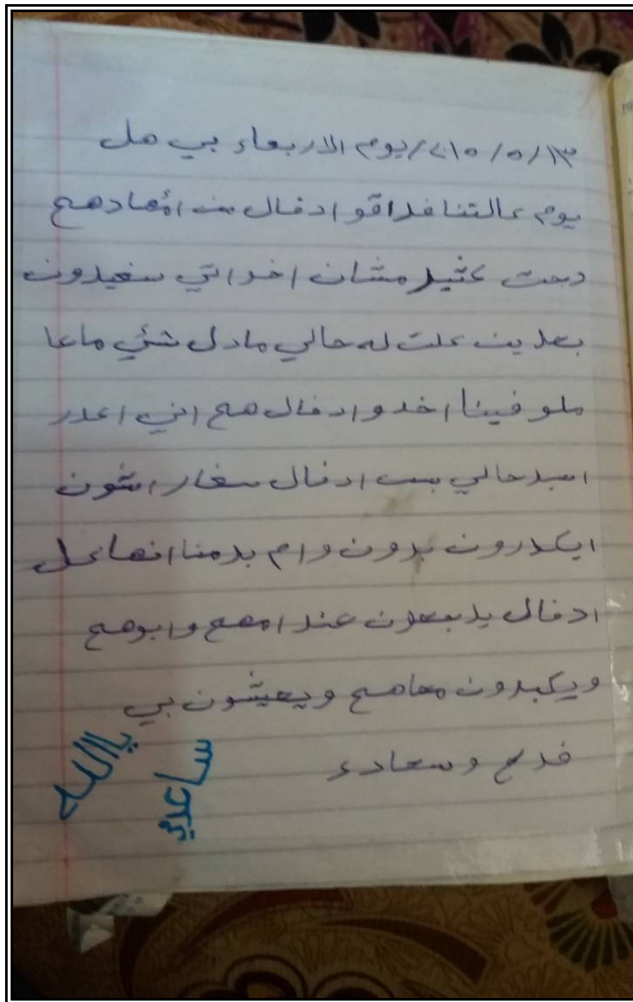 ٢٠١٥/٥/١٣/يوم الاربعاء بي هل
يوم عالتنا فداقو ادفال من أمهادهم
دحت عثير مشان اخواتي سغيدون
بعدين علت له حالي مادل شئ ماعا
ملو فينا اخدو ادفال هم اني اعدر
اسبد حالي بس ادفال سغار اشون
ايكدرون بدون وام بدمنا انها كل
ادفال يدبعون عند امهم وابوهم
ويكبدون معاهم ويعيشون بي
فدح وسعادء
ياالله